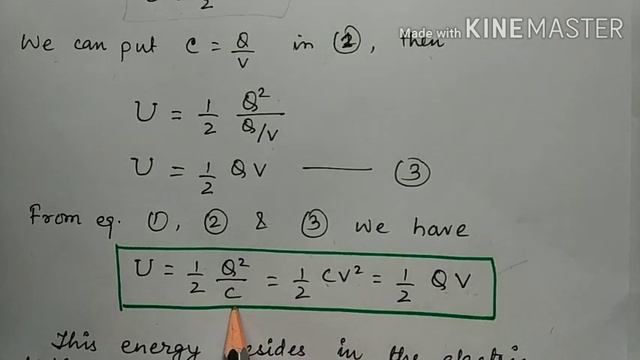 2
Made with KINEMASTER
We can put C = Q/V in ②, then
U = 1/2 Q²/Q/V
U = 1/2 QV —— ③
From eq. ①, ② & ③ we have
U = 1/2 Q²/C = 1/2 CV² = 1/2 QV
This energy resides in the electric